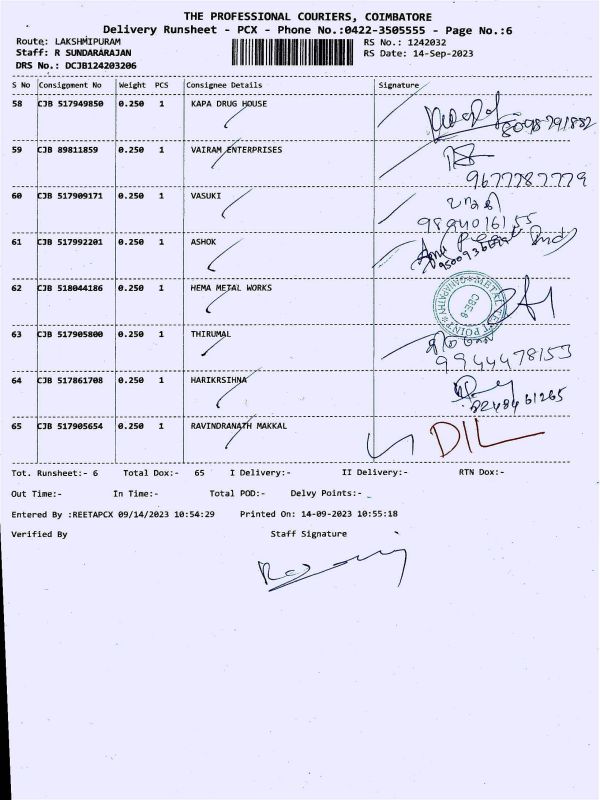 THE PROFESSIONAL COURIERS, COIMBATORE
Delivery Runsheet - PCX - Phone No.:0422-3505555 - Page No.:6
Route: LAKSHMIPURAM RS No.: 1242032
Staff: R SUNDARARAJAN RS Date: 14-Sep-2023
DRS No.: DCJB124203206
S No Consignment No Weight PCS Consignee Details Signature
58 CJB 517949850 0.250 1 KAPA DRUG HOUSE
59 CJB 89811859 0.250 1 VAIRAM ENTERPRISES
9677787779
60 CJB 517909171 0.250 1 VASUKI
9894016155
61 CJB 517992201 0.250 1 ASHOK
62 CJB 518044186 0.250 1 HEMA METAL WORKS
METAL POINT GANAPATHY CBE-6
63 CJB 517905800 0.250 1 THIRUMAL
9944478153
64 CJB 517861708 0.250 1 HARIKRSIHNA
8248461265
65 CJB 517905654 0.250 1 RAVINDRANATH MAKKAL DIL
Tot. Runsheet:- 6 Total Dox:- 65 I Delivery:- II Delivery:- RTN Dox:-
Out Time:- In Time:- Total POD:- Delvy Points:-
Entered By :REETAPCX 09/14/2023 10:54:29 Printed On: 14-09-2023 10:55:18
Verified By Staff Signature